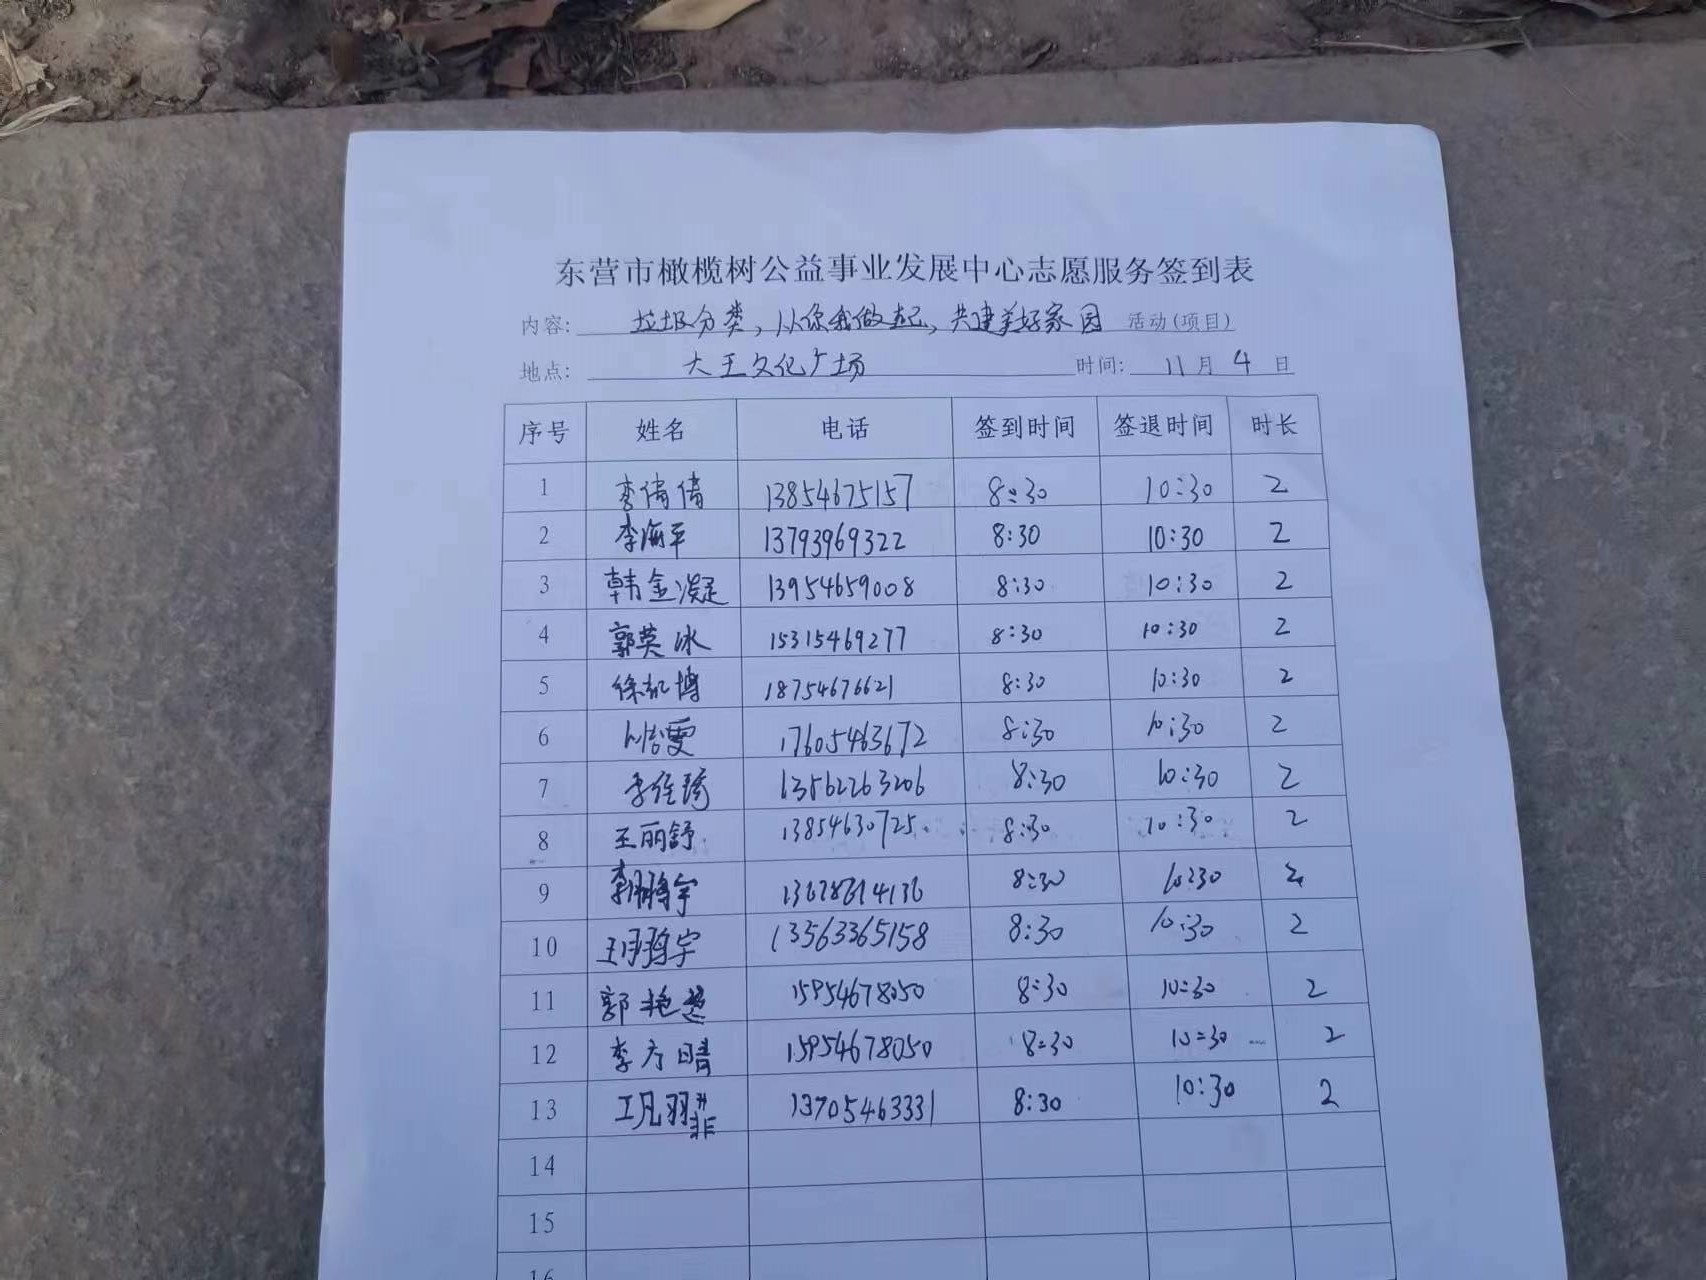 东营市橄榄树公益事业发展中心志愿服务签到表
内容: 垃圾分类，从你我做起，共建美好家园 活动(项目)
地点: 大王文化广场 时间: 11月4日
序号 姓名 电话 签到时间 签退时间 时长
1 李倩倩 13854675157 8:30 10:30 2
2 李海平 13793969322 8:30 10:30 2
3 韩金凝 13954659008 8:30 10:30 2
4 郭英冰 15315469277 8:30 10:30 2
5 徐凯博 18754676621 8:30 10:30 2
6 17605463672 8:30 10:30 2
7 13562263206 8:30 10:30 2
8 王丽舒 13854630725 8:30 10:30 2
9 李鹏宇 8:30 10:30 2
10 13563365158 8:30 10:30 2
11 郭艳超 15954678050 8:30 10:30 2
12 李方晴 15954678050 8:30 10:30 2
13 13705463331 8:30 10:30 2
14
15
16